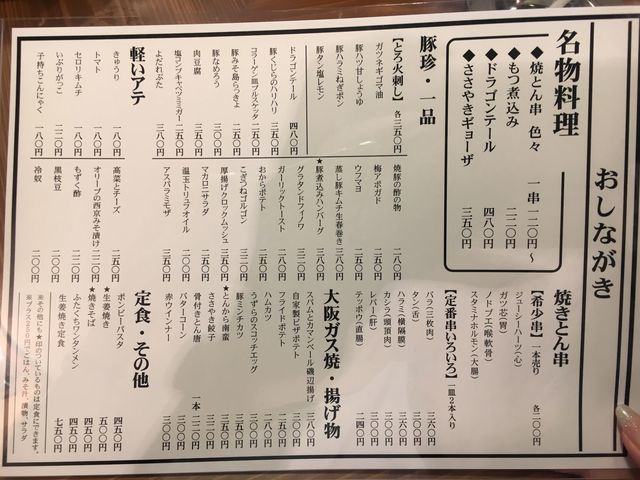 おしながき
名物料理
◆焼とん串 色々 一串一二〇円〜
◆もつ煮込み 二二〇円
◆ドラゴンテール 四八〇円
◆ささやきギョーザ 三五〇円
焼きとん串
【希少串】 一本売り
ジューシーハーツ(心) 各二〇〇円
ガツ芯(胃)
ノドブエ(喉軟骨)
スタミナホルモン(大腸)
【定番串いろいろ】 一皿2本入り
バラ(三枚肉) 三六〇円
タン(舌)
ハラミ(横隔膜)
カシラ(頭頂肉)
レバー(肝)
テッポウ(直腸) 二四〇円
豚珍・一品
【とろ火刺し】 各三五〇円
ガツネギゴマ油
豚ハツ甘しょうゆ
豚ハラミねぎポン
豚タン塩レモン
ドラゴンテール 四八〇円
豚くじらのハリハリ 三五〇円
コラーゲン皿ブルスケッタ 二五〇円
豚みそ島らっきょ 二五〇円
豚なめろう 三〇〇円
肉豆腐 三五〇円
塩コンキャベツミミガー 二五〇円
よだれぶた 三八〇円
焼豚の酢の物 二八〇円
梅アボガド
ウフマヨ
蒸し豚キムチ生春巻き
★豚煮込みハンバーグ 三八〇円
グラタンドフィノワ
ガーリックトースト
おからポテト
こぎつねゴルゴン
厚揚げクロックムッシュ
マカロニサラダ
温玉トリュフオイル
アスパラミモザ 三五〇円
大阪ガス焼・揚げ物
スパムとカマンベール磯辺揚げ 三八〇円
自家製ピザポテト
フライドポテト
ハムカツ
うずらのスコッチエッグ
豚ミンチカツ
★とんから南蛮
ささやき餃子 三五〇円
骨付きとん唐 一本
バターコーン
赤ウインナー
軽いアテ
きゅうり 一八〇円
トマト 一八〇円
セロリキムチ 一八〇円
いぶりがっこ 二二〇円
子持ちこんにゃく 一八〇円
高菜とチーズ 二五〇円
オリーブの西京みそ漬け 二二〇円
もずく酢 二〇〇円
黒枝豆 二〇〇円
冷奴 二〇〇円
定食・その他
ボンビーパスタ 四五〇円
★生姜焼き 五〇〇円
★焼きそば 四五〇円
ふたくちワンタンメン 四五〇円
生姜焼き定食 七五〇円
※その他にも★印のついているものは定食にできます。
※プラス250円でごはん、みそ汁、漬物、サラダ